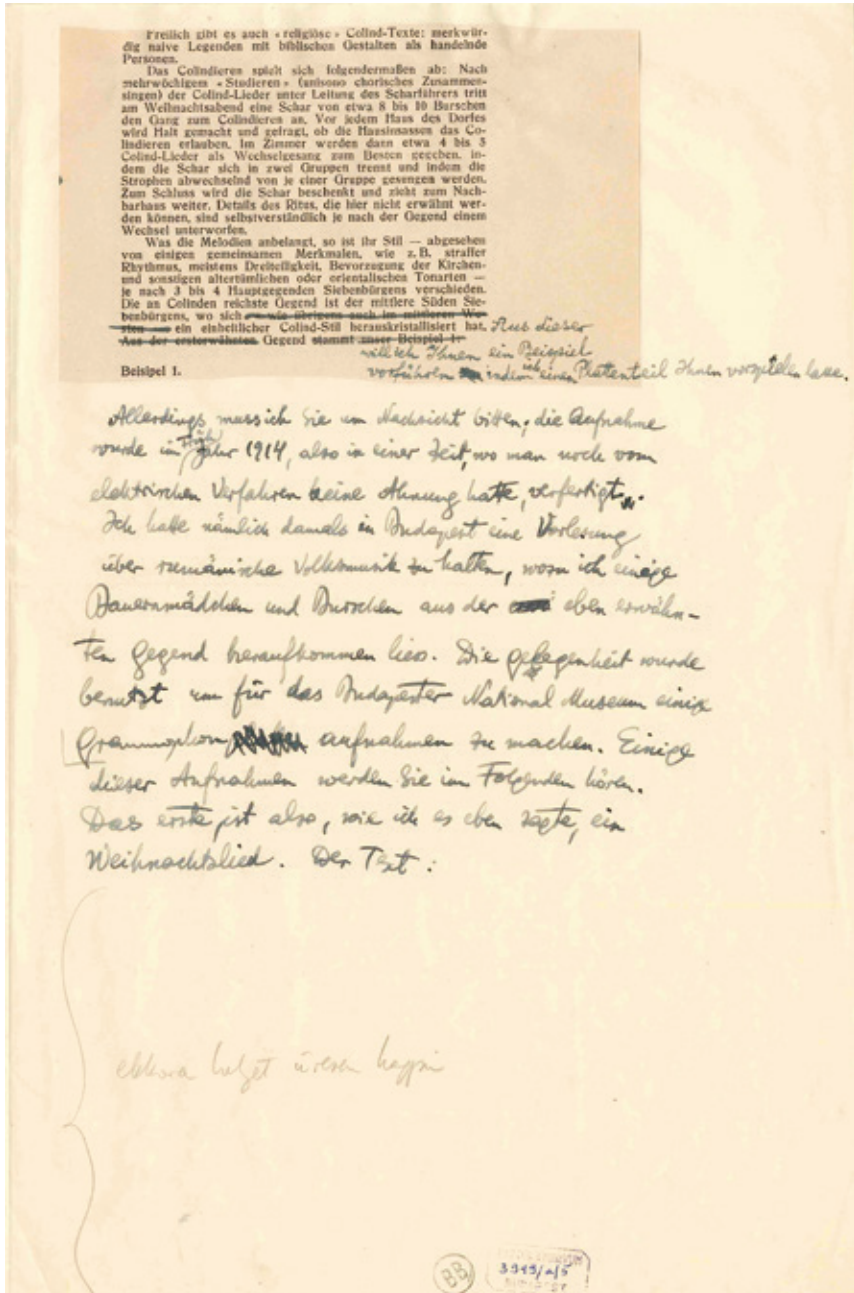 Freilich gibt es auch «religiöse» Colind-Texte: merkwür-
dig naive Legenden mit biblischen Gestalten als handelnde
Personen.
Das Colindieren spielt sich folgendermaßen ab: Nach
mehrwöchigem «Studieren» (unisono chorisches Zusammen-
singen) der Colind-Lieder unter Leitung des Scharführers tritt
am Weihnachtsabend eine Schar von etwa 8 bis 10 Burschen
den Gang zum Colindieren an. Vor jedem Haus des Dorfes
wird Halt gemacht und gefragt, ob die Hausinsassen das Co-
lindieren erlauben. Im Zimmer werden dann etwa 4 bis 5
Colind-Lieder als Wechselgesang zum Besten gegeben, in-
dem die Schar sich in zwei Gruppen trennt und indem die
Strophen abwechselnd von je einer Gruppe gesengen werden.
Zum Schluss wird die Schar beschenkt und zieht zum Nach-
barhaus weiter. Details des Rites, die hier nicht erwähnt wer-
den können, sind selbstverständlich je nach der Gegend einem
Wechsel unterworfen.
Was die Melodien anbelangt, so ist ihr Stil — abgesehen
von einigen gemeinsamen Merkmalen, wie z. B. straffer
Rhythmus, meistens Dreiteiligkeit, Bevorzugung der Kirchen-
und sonstigen altertümlichen oder orientalischen Tonarten —
je nach 3 bis 4 Hauptgegenden Siebenbürgens verschieden.
Die an Colinden reichste Gegend ist der mittlere Süden Sie-
benbürgens, wo sich — wie übrigens auch im mittleren We-
sten — ein einheitlicher Colind-Stil herauskristallisiert hat. Aus dieser
Aus der ersterwähnten Gegend stammt unser Beispiel 1:
will ich Ihnen ein Beispiel
vorführen indem ich einen Plattenteil Ihnen vorspielen lasse.
Beisipel 1.
Allerdings muss ich Sie um Nachsicht bitten; die Aufnahme
wurde im Frühjahr 1914, also in einer Zeit, wo man noch vom
elektrischen Verfahren keine Ahnung hatte, verfertigt.
Ich hatte nämlich damals in Budapest eine Vorlesung
über rumänische Volksmusik zu halten, wozu ich einige
Bauernmädchen und Burschen aus der eben erwähn-
ten Gegend heraufkommen liess. Die Gelegenheit wurde
benutzt um für das Budapester National Museum einige
Grammophon aufnahmen zu machen. Einige
dieser Aufnahmen werden Sie im Folgenden hören.
Das erste ist also, wie ich es eben sagte, ein
Weihnachtslied. Der Text:
ekkora helyet üresen hagyni
BB
3919/a/5
BUDAPEST